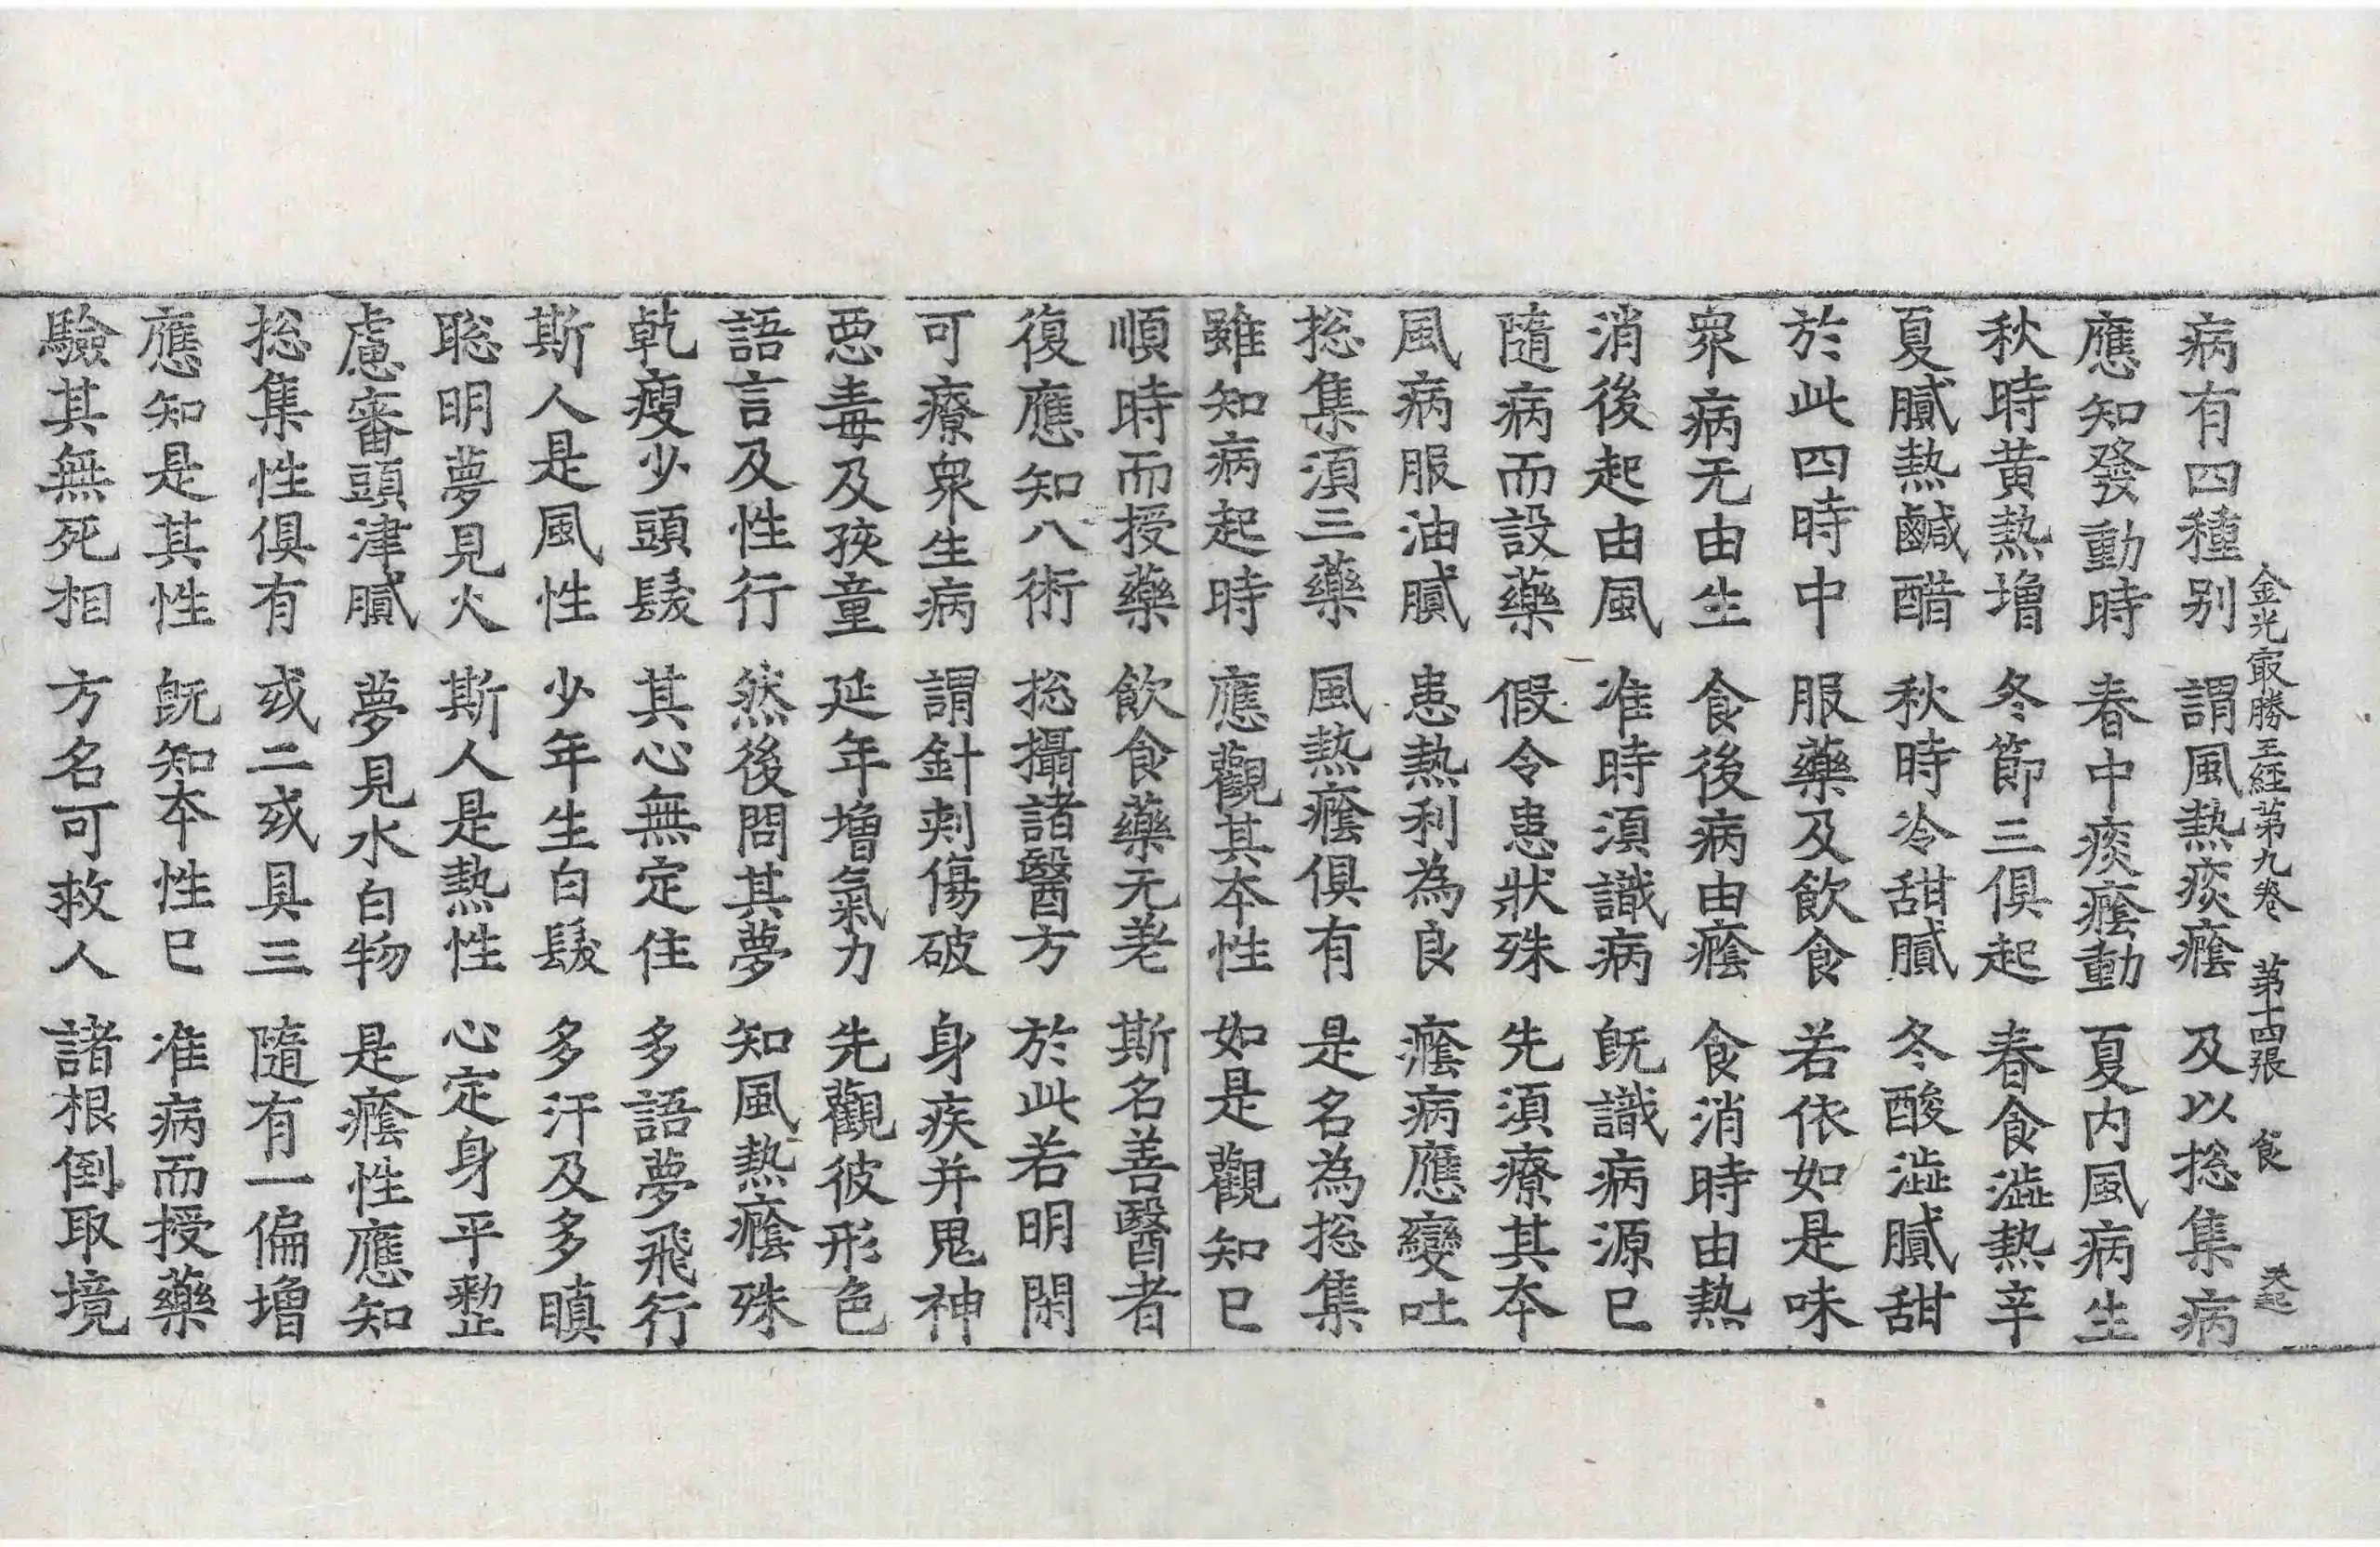 金光㝡勝王経第九卷 第十四張 食
病有四種别 謂風熱痰癊 及以捴集病
應知發動時 春中痰癊動 夏内風病生
秋時黄熱增 冬節三俱起 春食澁熱辛
夏膩熱鹹醋 秋時冷甜膩 冬酸澁膩甜
於此四時中 服藥及飲食 若依如是味
衆病无由生 食後病由癊 食消時由熱
消後起由風 准時湏識病 旣識病源已
隨病而設藥 假令患狀殊 先湏療其本
風病服油膩 患熱利為良 癊病應變吐
捴集湏三藥 風熱癊俱有 是名為捴集
雖知病起時 應觀其本性 如是觀知已
順時而授藥 飲食藥无差 斯名善醫者
復應知八術 捴攝諸醫方 於此若明閑
可療衆生病 謂針刺傷破 身疾并鬼神
惡毒及孩童 延年增氣力 先觀彼形色
語言及性行 然後問其夢 知風熱癊殊
乹瘦少頭髮 其心無定住 多語夢飛行
斯人是風性 少年生白髮 多汗及多瞋
聡明夢見火 斯人是熱性 心定身平整
慮審頭津膩 夢見水白物 是癊性應知
捴集性俱有 或二或具三 隨有一偏增
應知是其性 旣知本性已 准病而授藥
驗其無死相 方名可救人 諸根倒取境